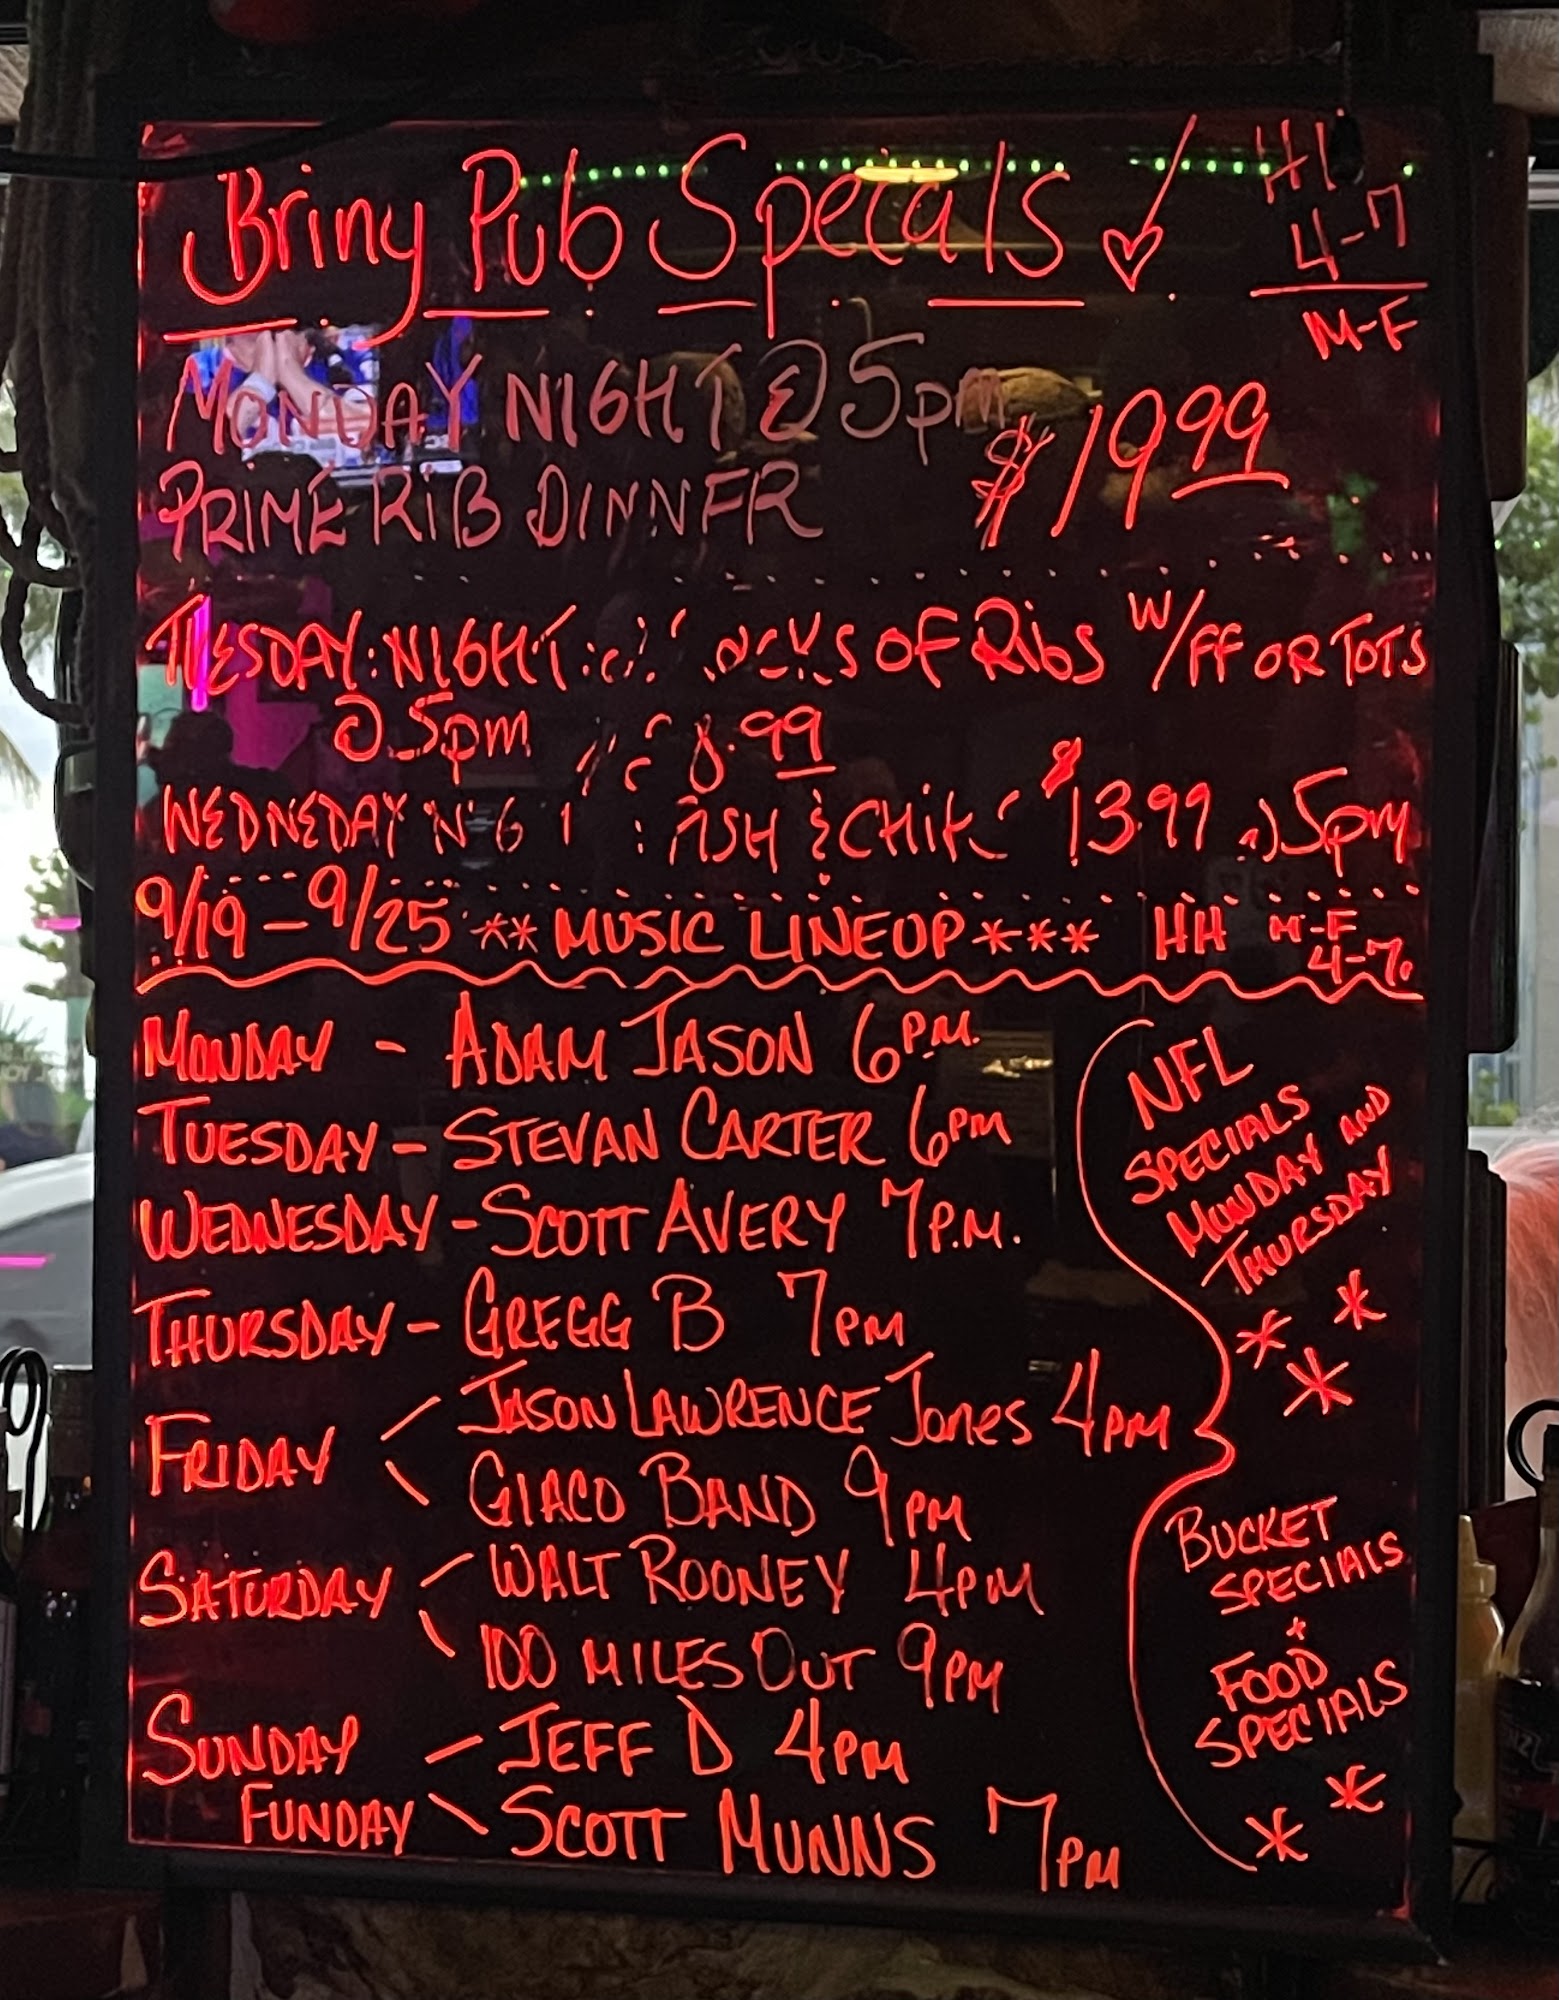 Briny Pub Specials
HH
4-7
M-F
MONDAY NIGHT @ 5pm
PRIME RIB DINNER $19.99
TUESDAY: NIGHT: OF RIBS W/FF OR TOTS
@ 5pm 8.99
WEDNEDAY & $13.99 5pm
9/19-9/25 ** MUSIC LINEUP *** HH M-F
4-7
MONDAY - ADAM JASON 6P.M.
TUESDAY - STEVAN CARTER 6PM
WEDNESDAY - SCOTT AVERY 7P.M.
THURSDAY - GREGG B 7PM
FRIDAY JASON LAWRENCE Jones 4PM
GIACO BAND 9PM
SATURDAY WALT ROONEY 4PM
100 MILES OUT 9PM
SUNDAY - JEFF D 4PM
FUNDAY SCOTT MUNNS 7PM
NFL
SPECIALS
MONDAY AND
THURSDAY
* *
*
BUCKET
SPECIALS
+
FOOD
SPECIALS
* *